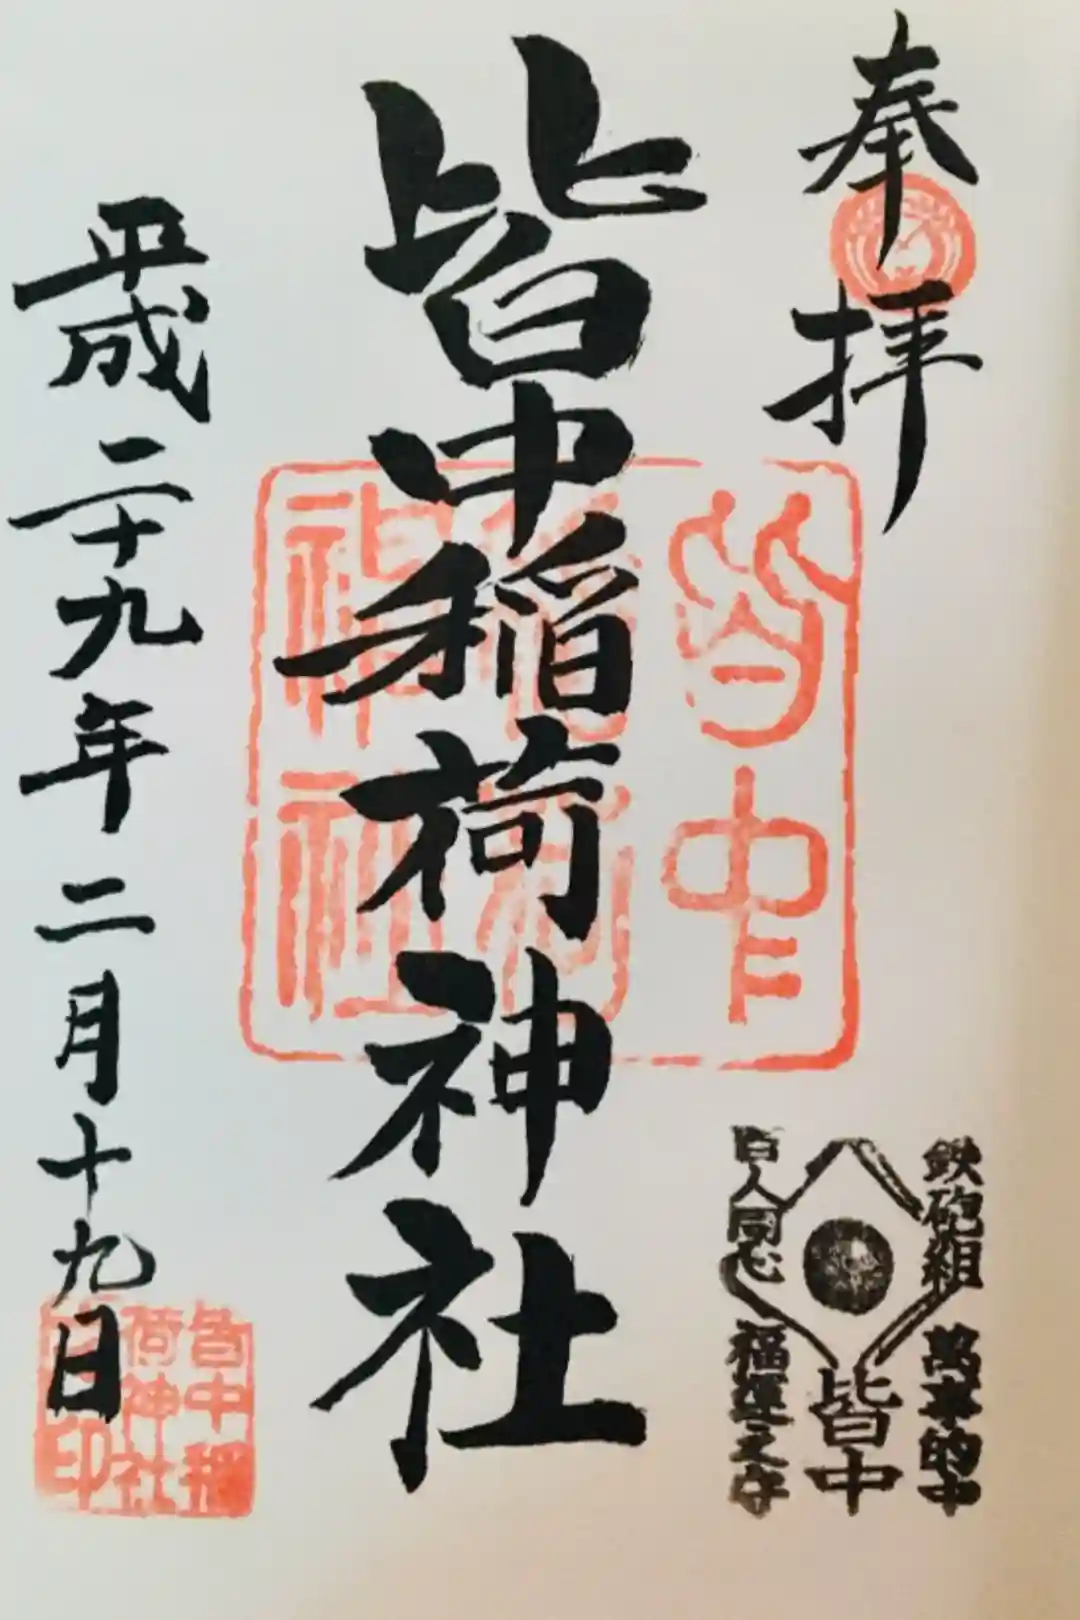 奉拝
皆中稲荷神社
平成二十九年二月十九日
皆中
稲荷
神社
鉄砲組 萬事的中
皆中
百人同心 福運之守
皆中稲
荷神社
之印